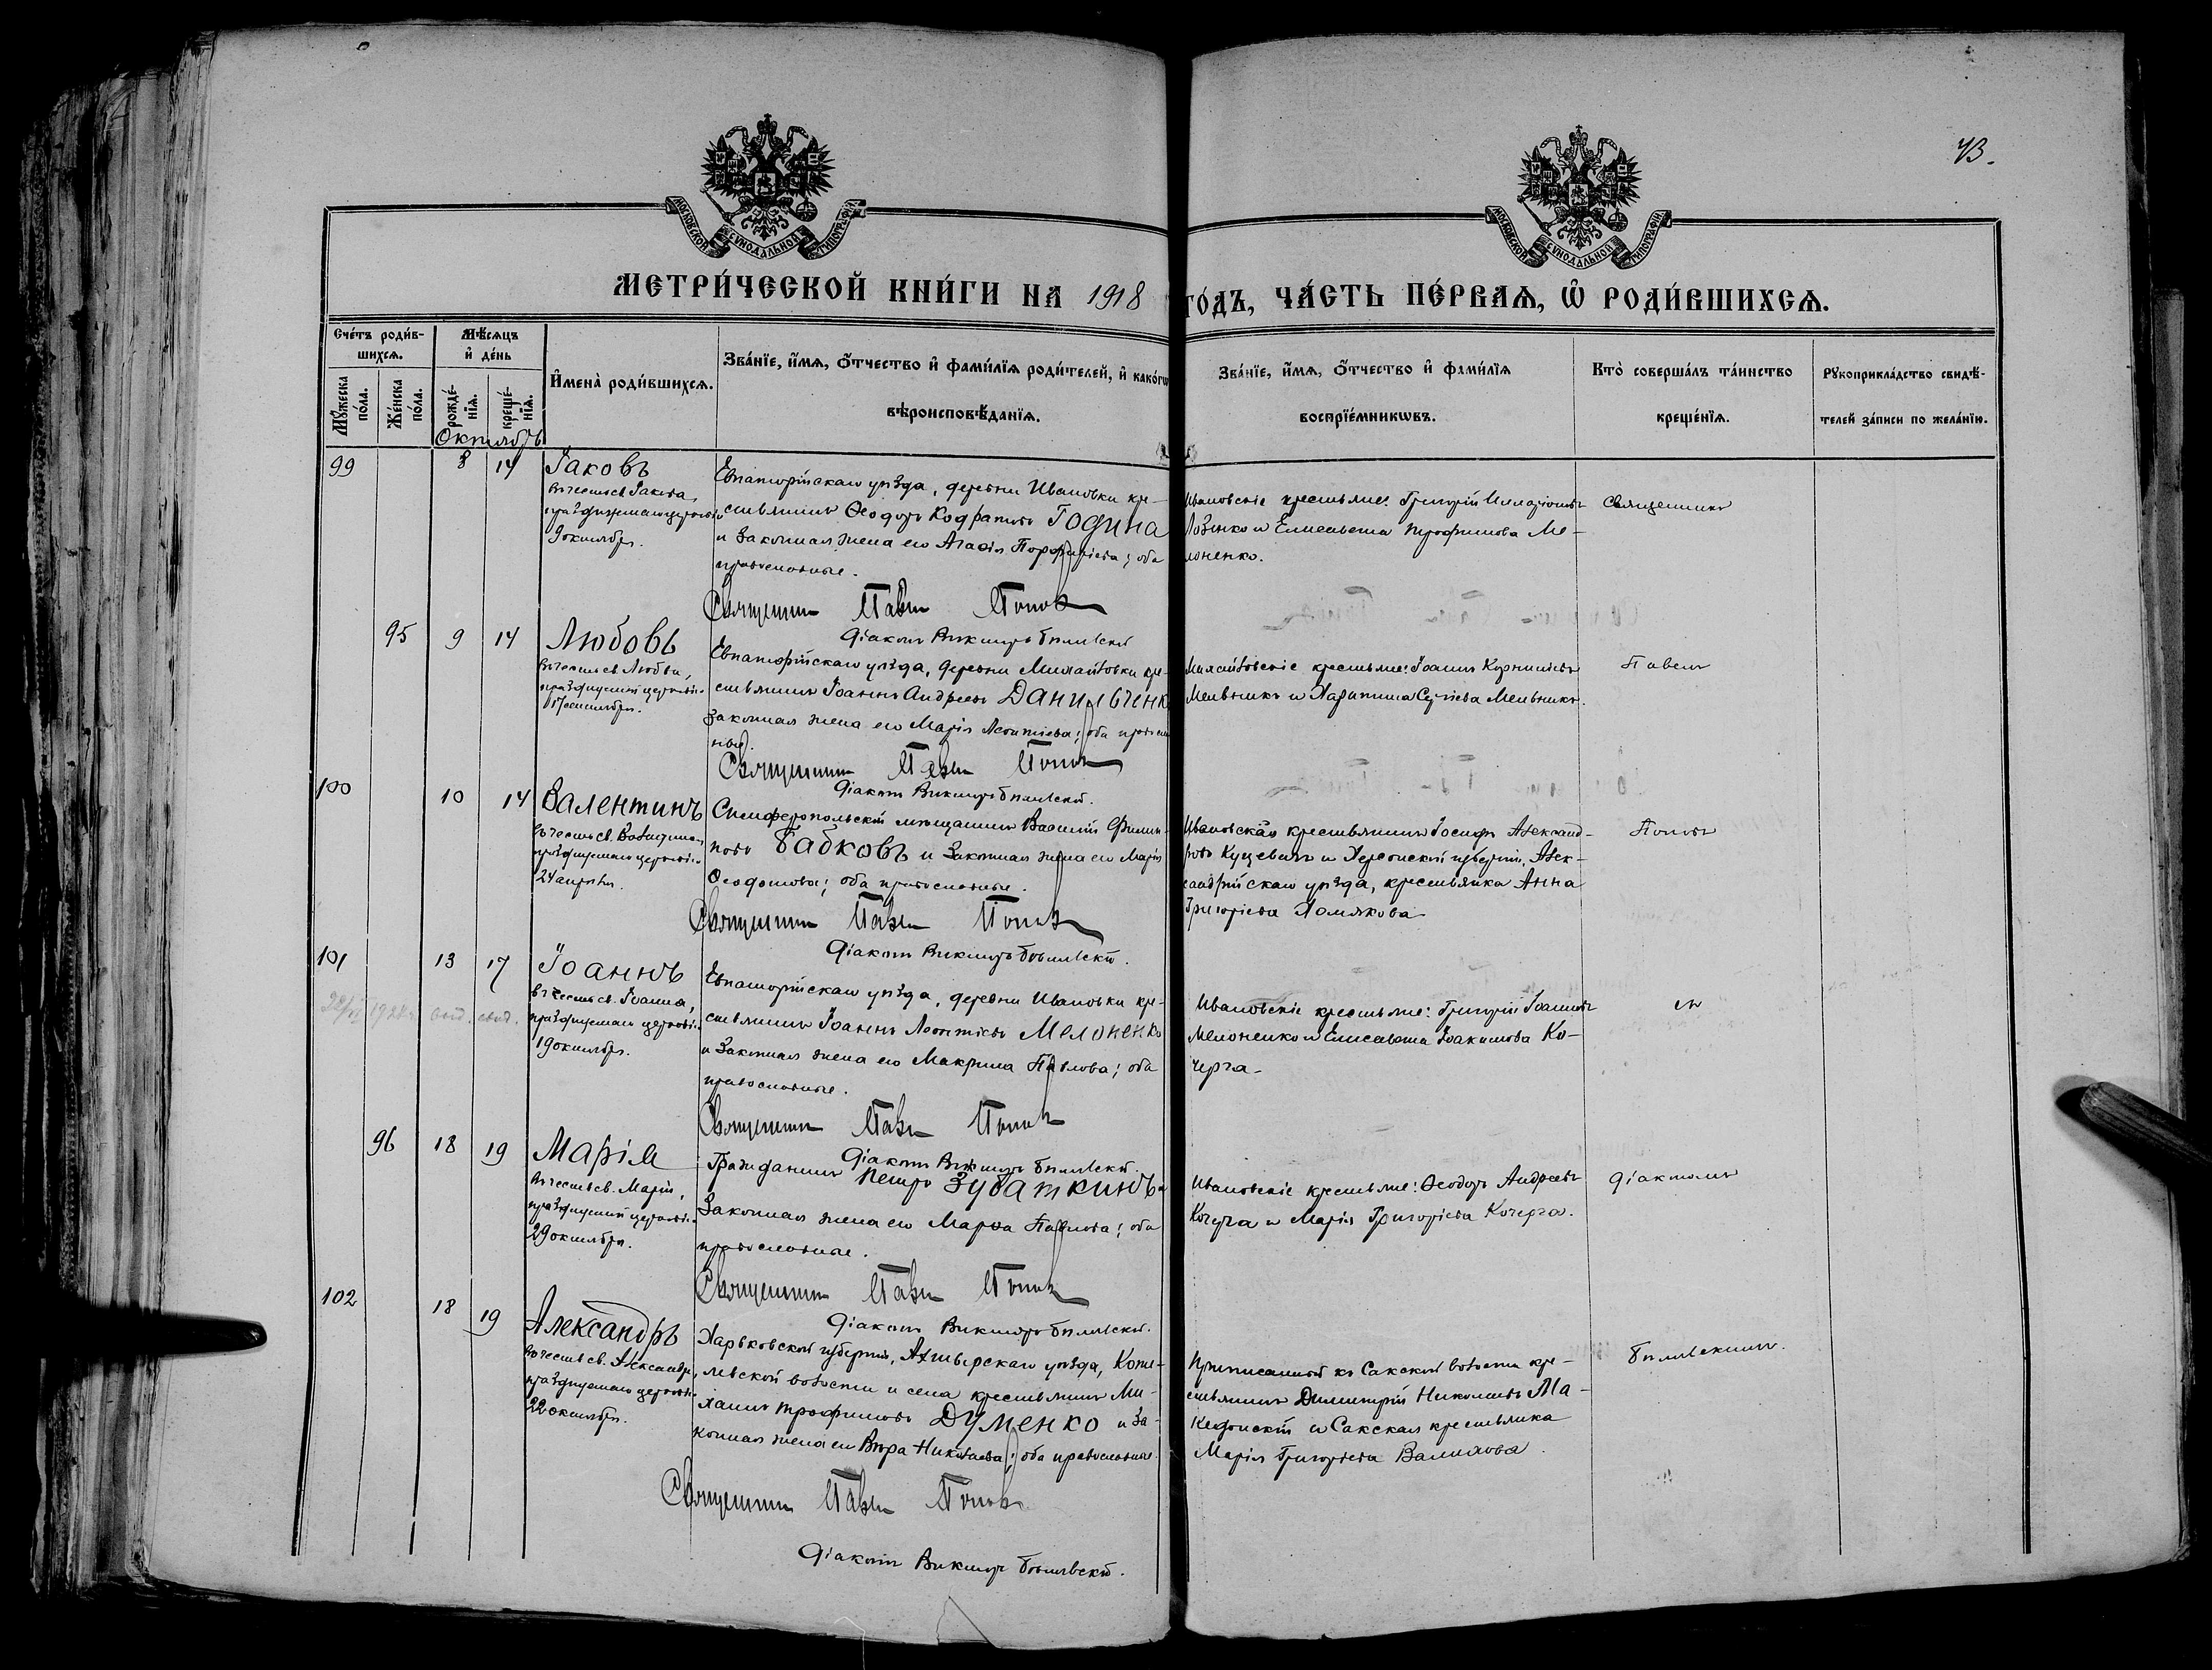 43.
МОСКОВСКОЙ СѴНОДАЛЬНОЙ ТИПОГРАФІИ
МОСКОВСКОЙ СѴНОДАЛЬНОЙ ТИПОГРАФІИ
МЕТРИ́ЧЕСКОЙ КНИ́ГИ НА 1918 ГО́ДЪ, ЧА́СТЬ ПЕ́РВАѦ, Ѡ҆ РОДИ́ВШИХСѦ.
Сче́тъ роди́в-
шихсѧ.
Мꙋ́жеска
по́ла.
Же́нска
по́ла.
Мѣ́сѧцъ
и҆ де́нь
рожде́-
нїѧ.
креще́-
нїѧ.
И҆мена̀ роди́вшихсѧ.
Зва́нїе, и҆́мѧ, ѻ҆́тчество и҆ фами́лїѧ роди́телей, и҆ како́гѡ
вѣроисповѣ́данїѧ.
Зва́нїе, и҆́мѧ, ѻ҆́тчество и҆ фами́лїѧ
воспрїе́мникѡвъ.
Кто̀ соверша́лъ та́инство
креще́нїѧ.
Рꙋкоприкла́дство свидѣ́-
телей за́писи по жела́нїю.
Октябрь
99 8 14 Іаковъ
въ честь св. Іакова,
празднуемаго церковію
9 октября.
Евпаторійскаго уѣзда, деревни Ивановки кре-
стьянинъ Ѳеодоръ Кодратовъ Година
и законная жена его Агаѳія Порфиріева; оба
православные.
Священникъ Павелъ Поповъ
Діаконъ Викторъ Былевскій
Ивановскіе крестьяне: Григорій Иларіоновъ
Лозенко и Елисавета Трофимова Ме-
лоненко.
Священникъ
95 9 14 Любовь
въ честь св. Любви,
празднуемой церковію
17 сентября.
Евпаторійскаго уѣзда, деревни Михайловки кре-
стьянинъ Іоаннъ Андреевъ Данильченко
законная жена его Марія Леонтіева; оба православ
ные.
Священникъ Павелъ Поповъ
Діаконъ Викторъ Былевскій.
Михайловскіе крестьяне: Іоаннъ Корниліевъ
Мельникъ и Харитина Сергіева Мельникъ.
Павелъ
100 10 14 Валентинъ
въ честь св. Валентина
празднуемаго церковію
24 апрѣля.
Симферопольскій мѣщанинъ Василій Филип-
повъ Бабковъ и законная жена его Марія
Ѳеодотова; оба православные.
Священникъ Павелъ Поповъ
Діаконъ Викторъ Былевскій.
Ивановская крестьянинъ Іосифъ Александ-
ровъ Куцевалъ и Херсонской губерніи, Алек-
сандрійскаго уѣзда, крестьянка Анна
Григоріева Хомякова
Поповъ
101 13 17 Іоаннъ
въ честь св. Іоанна,
празднуемаго церковію
19 октября.
Евпаторійскаго уѣзда, деревни Ивановки кре-
стьянинъ Іоаннъ Леонтіевъ Мелоненко
и законная жена его Макрина Павлова; оба
православные.
Священникъ Павелъ Поповъ
Діаконъ Викторъ Былевскій.
Ивановскіе крестьяне: Григорій Іоанновъ
Мелоненко и Елисавета Іоакимова Ко-
черга.
съ
96 18 19 Марія
въ честь св. Маріи,
празднуемой церковію
29 октября.
Гражданинъ Петръ Зубаткинъ и
законная жена его Марѳа Павлова; оба
православные.
Священникъ Павелъ Поповъ
Діаконъ Викторъ Былевскій.
Ивановскіе крестьяне: Ѳеодоръ Андреевъ
Кочерга и Марія Григоріева Кочерга.
діакономъ
102 18 19 Александръ
въ честь св. Александра,
празднуемаго церковію
22 октября.
Харьковской губерніи, Ахтырскаго уѣзда, Коте-
левской волости и села крестьянинъ Ми-
хаилъ Трофимовъ Думенко и за-
конная жена его Вѣра Николаева; оба православные.
Священникъ Павелъ Поповъ
Діаконъ Викторъ Былевскій.
Приписанный къ Сакской волости кре-
стьянинъ Димитрій Николаевъ Ма-
кедонскій и Сакская крестьянка
Марія Григоріева Валихова.
Былевскимъ.